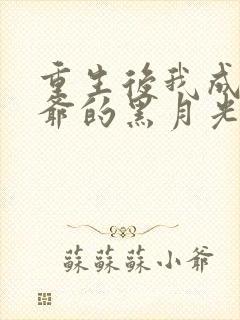 重生後我成
爺的黑月光
蘇蘇蘇小爺